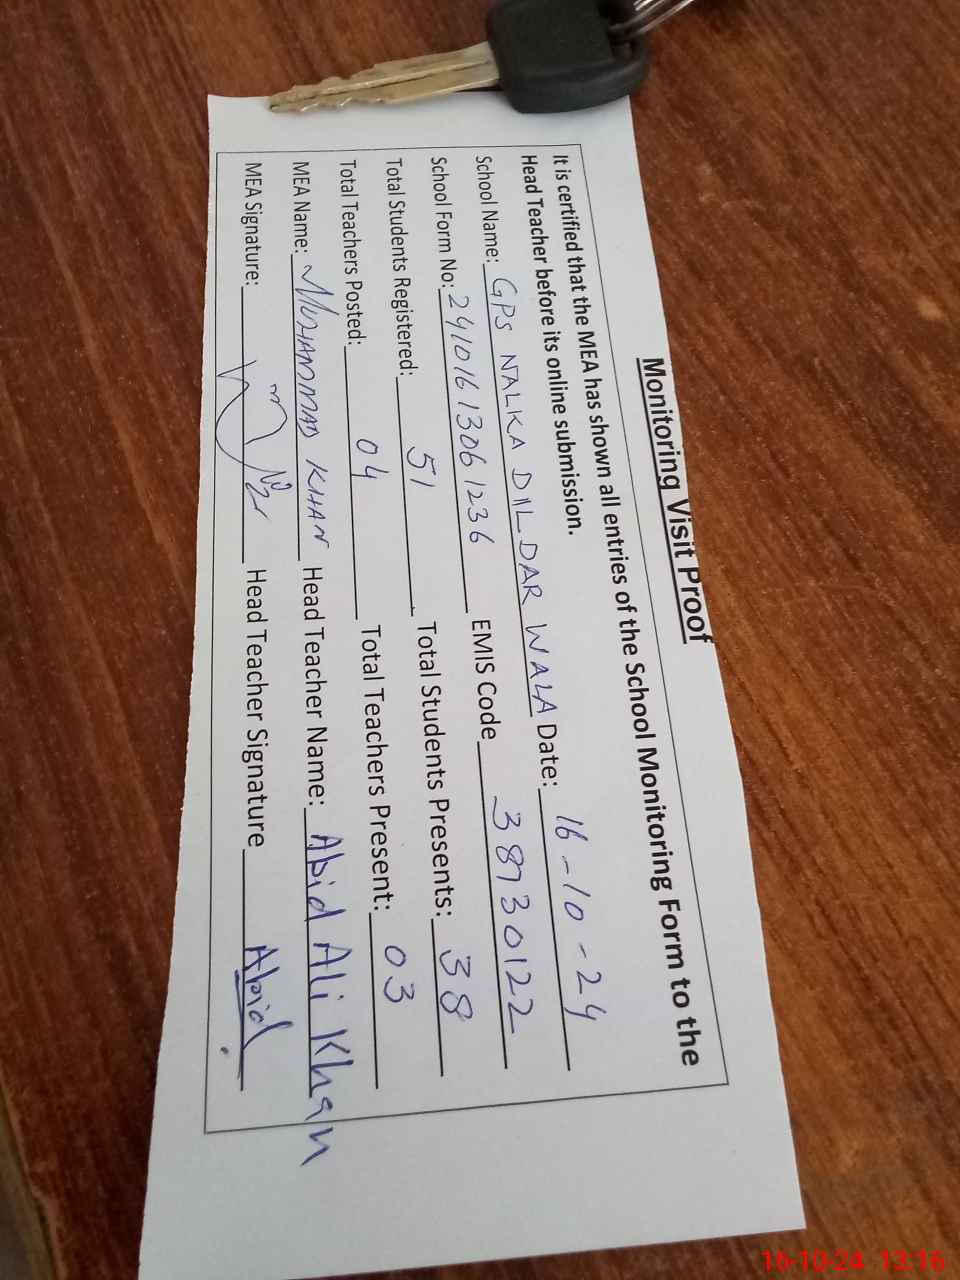 Monitoring Visit Proof
It is certified that the MEA has shown all entries of the School Monitoring Form to the
Head Teacher before its online submission.
School Name: GPS NALKA DILDAR WALA Date: 16-10-24
School Form No: 2410161306 1236 EMIS Code 38730122
Total Students Registered: 51 Total Students Presents: 38
Total Teachers Posted: 04 Total Teachers Present: 03
MEA Name: MUHAMMAD KHAN Head Teacher Name: Abid Ali Khan
MEA Signature: Head Teacher Signature Abid
16-10-24 13:16